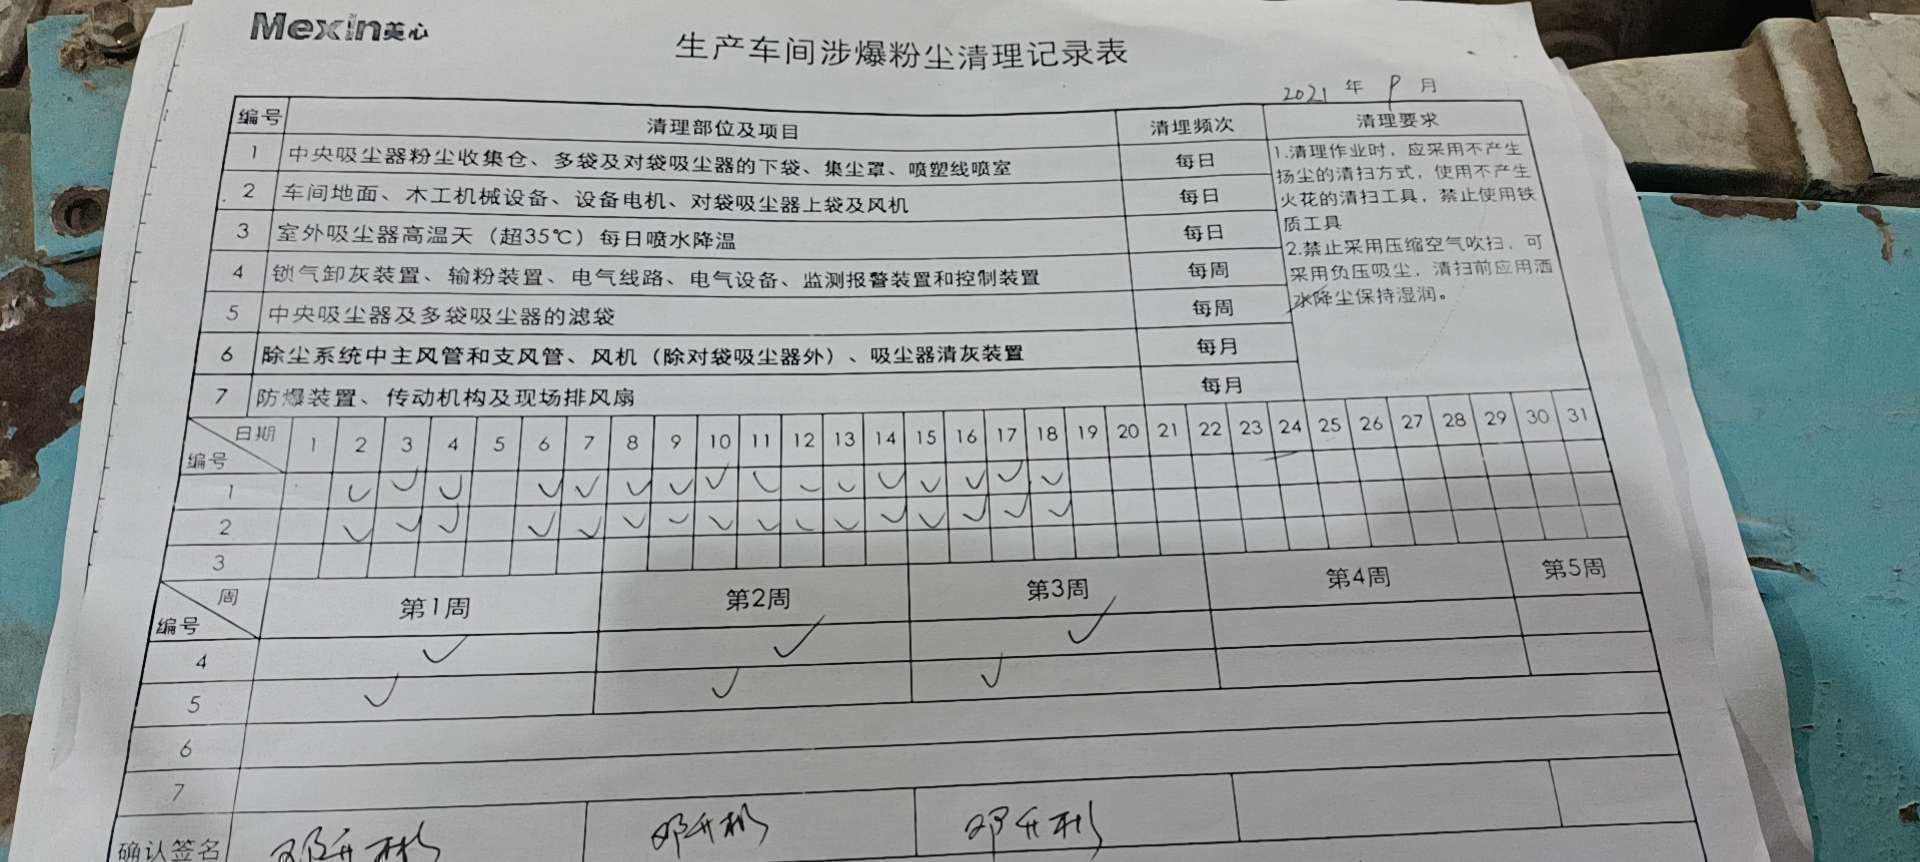 Mexin美心
生产车间涉爆粉尘清理记录表
2021 年 9 月
编号 清理部位及项目 清理频次 清理要求
1 中央吸尘器粉尘收集仓、多袋及对袋吸尘器的下袋、集尘罩、喷塑线喷室 每日
2 车间地面、木工机械设备、设备电机、对袋吸尘器上袋及风机 每日
3 室外吸尘器高温天（超35℃）每日喷水降温 每日
4 锁气卸灰装置、输粉装置、电气线路、电气设备、监测报警装置和控制装置 每周
5 中央吸尘器及多袋吸尘器的滤袋 每周
6 除尘系统中主风管和支风管、风机（除对袋吸尘器外）、吸尘器清灰装置 每月
7 防爆装置、传动机构及现场排风扇 每月
1.清理作业时，应采用不产生
扬尘的清扫方式，使用不产生
火花的清扫工具，禁止使用铁
质工具
2.禁止采用压缩空气吹扫，可
采用负压吸尘，清扫前应用洒
水降尘保持湿润。
日期 1 2 3 4 5 6 7 8 9 10 11 12 13 14 15 16 17 18 19 20 21 22 23 24 25 26 27 28 29 30 31
编号
1 ✓ ✓ ✓ ✓ ✓ ✓ ✓ ✓ ✓ ✓ ✓ ✓ ✓ ✓ ✓ ✓
2 ✓ ✓ ✓ ✓ ✓ ✓ ✓ ✓ ✓ ✓ ✓ ✓ ✓ ✓ ✓ ✓
3
周 第1周 第2周 第3周 第4周 第5周
编号
4 ✓ ✓ ✓
5 ✓ ✓ ✓
6
7
确认签名